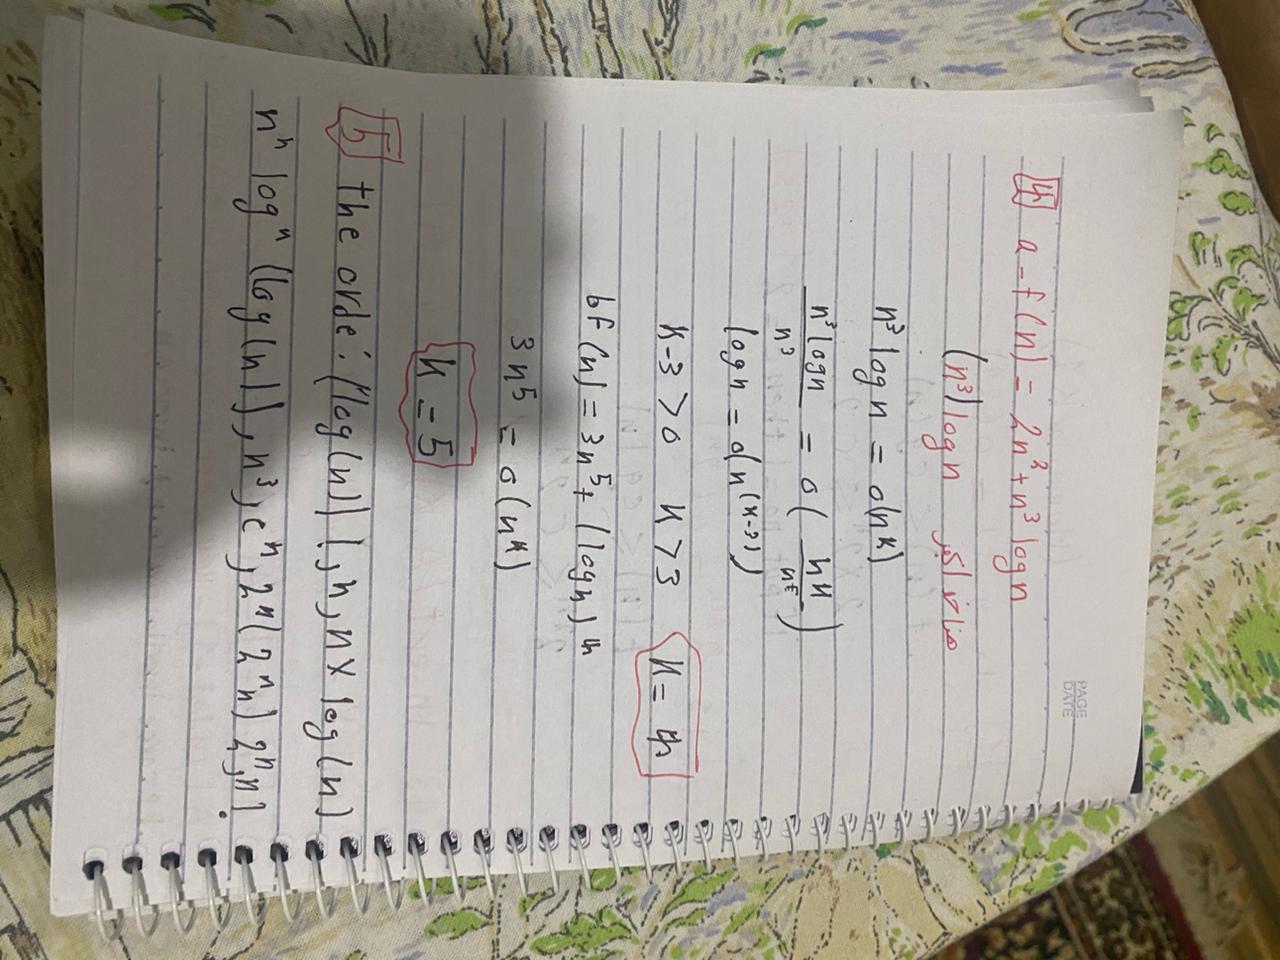 PAGE
DATE
4 a - f(n) = 2n³ + n³ logn
(n³) logn هنا أكبر
n³ logn = o(nᵏ)
n³ logn / n³ = o( nᵏ / n³ )
logn = o(n⁽ᵏ⁻³⁾)
k-3 > 0 k > 3 k = 4
b f(n) = 3n⁵ + (logn)⁴
3n⁵ = o(nᵏ)
k = 5
5 the orde: (log(n)), n, n × log(n)
nⁿ logⁿ (log(n)), n³, eⁿ, 2ⁿ (2ⁿn) 2ⁿ, n!